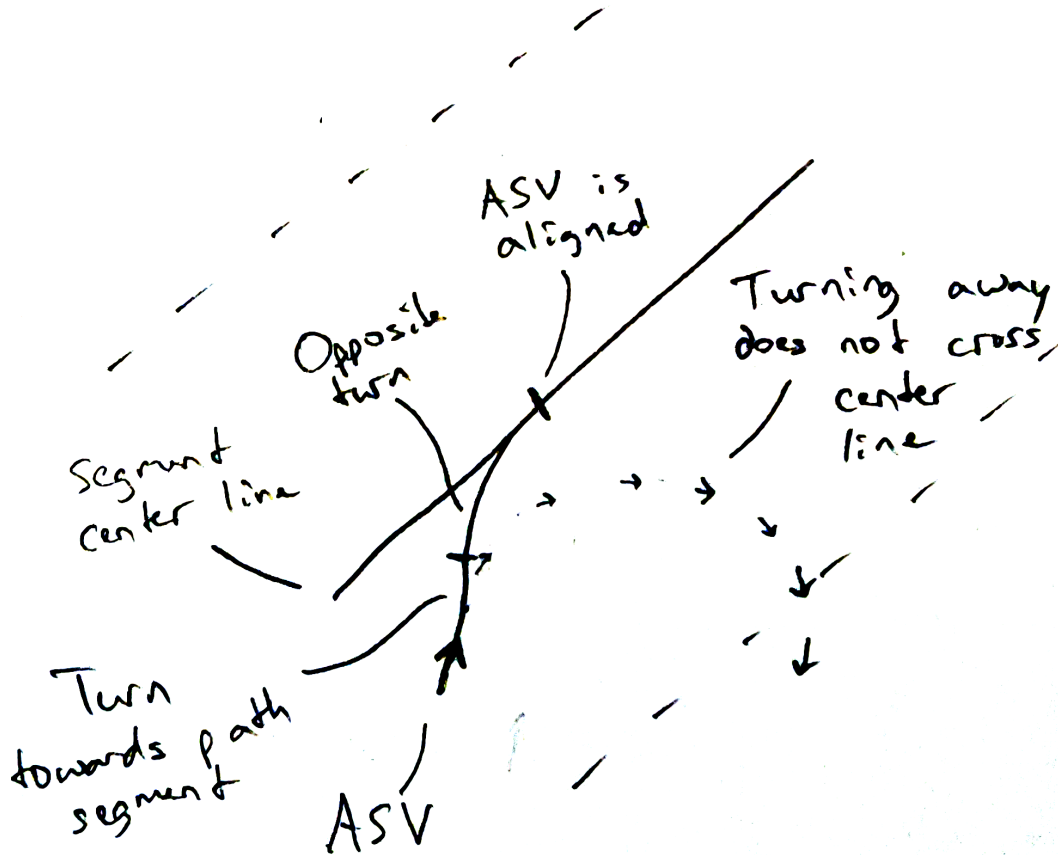 ASV is
aligned
Turning away
does not cross
center
line
Opposite
turn
Segment
center line
Turn
towards path
segment
ASV